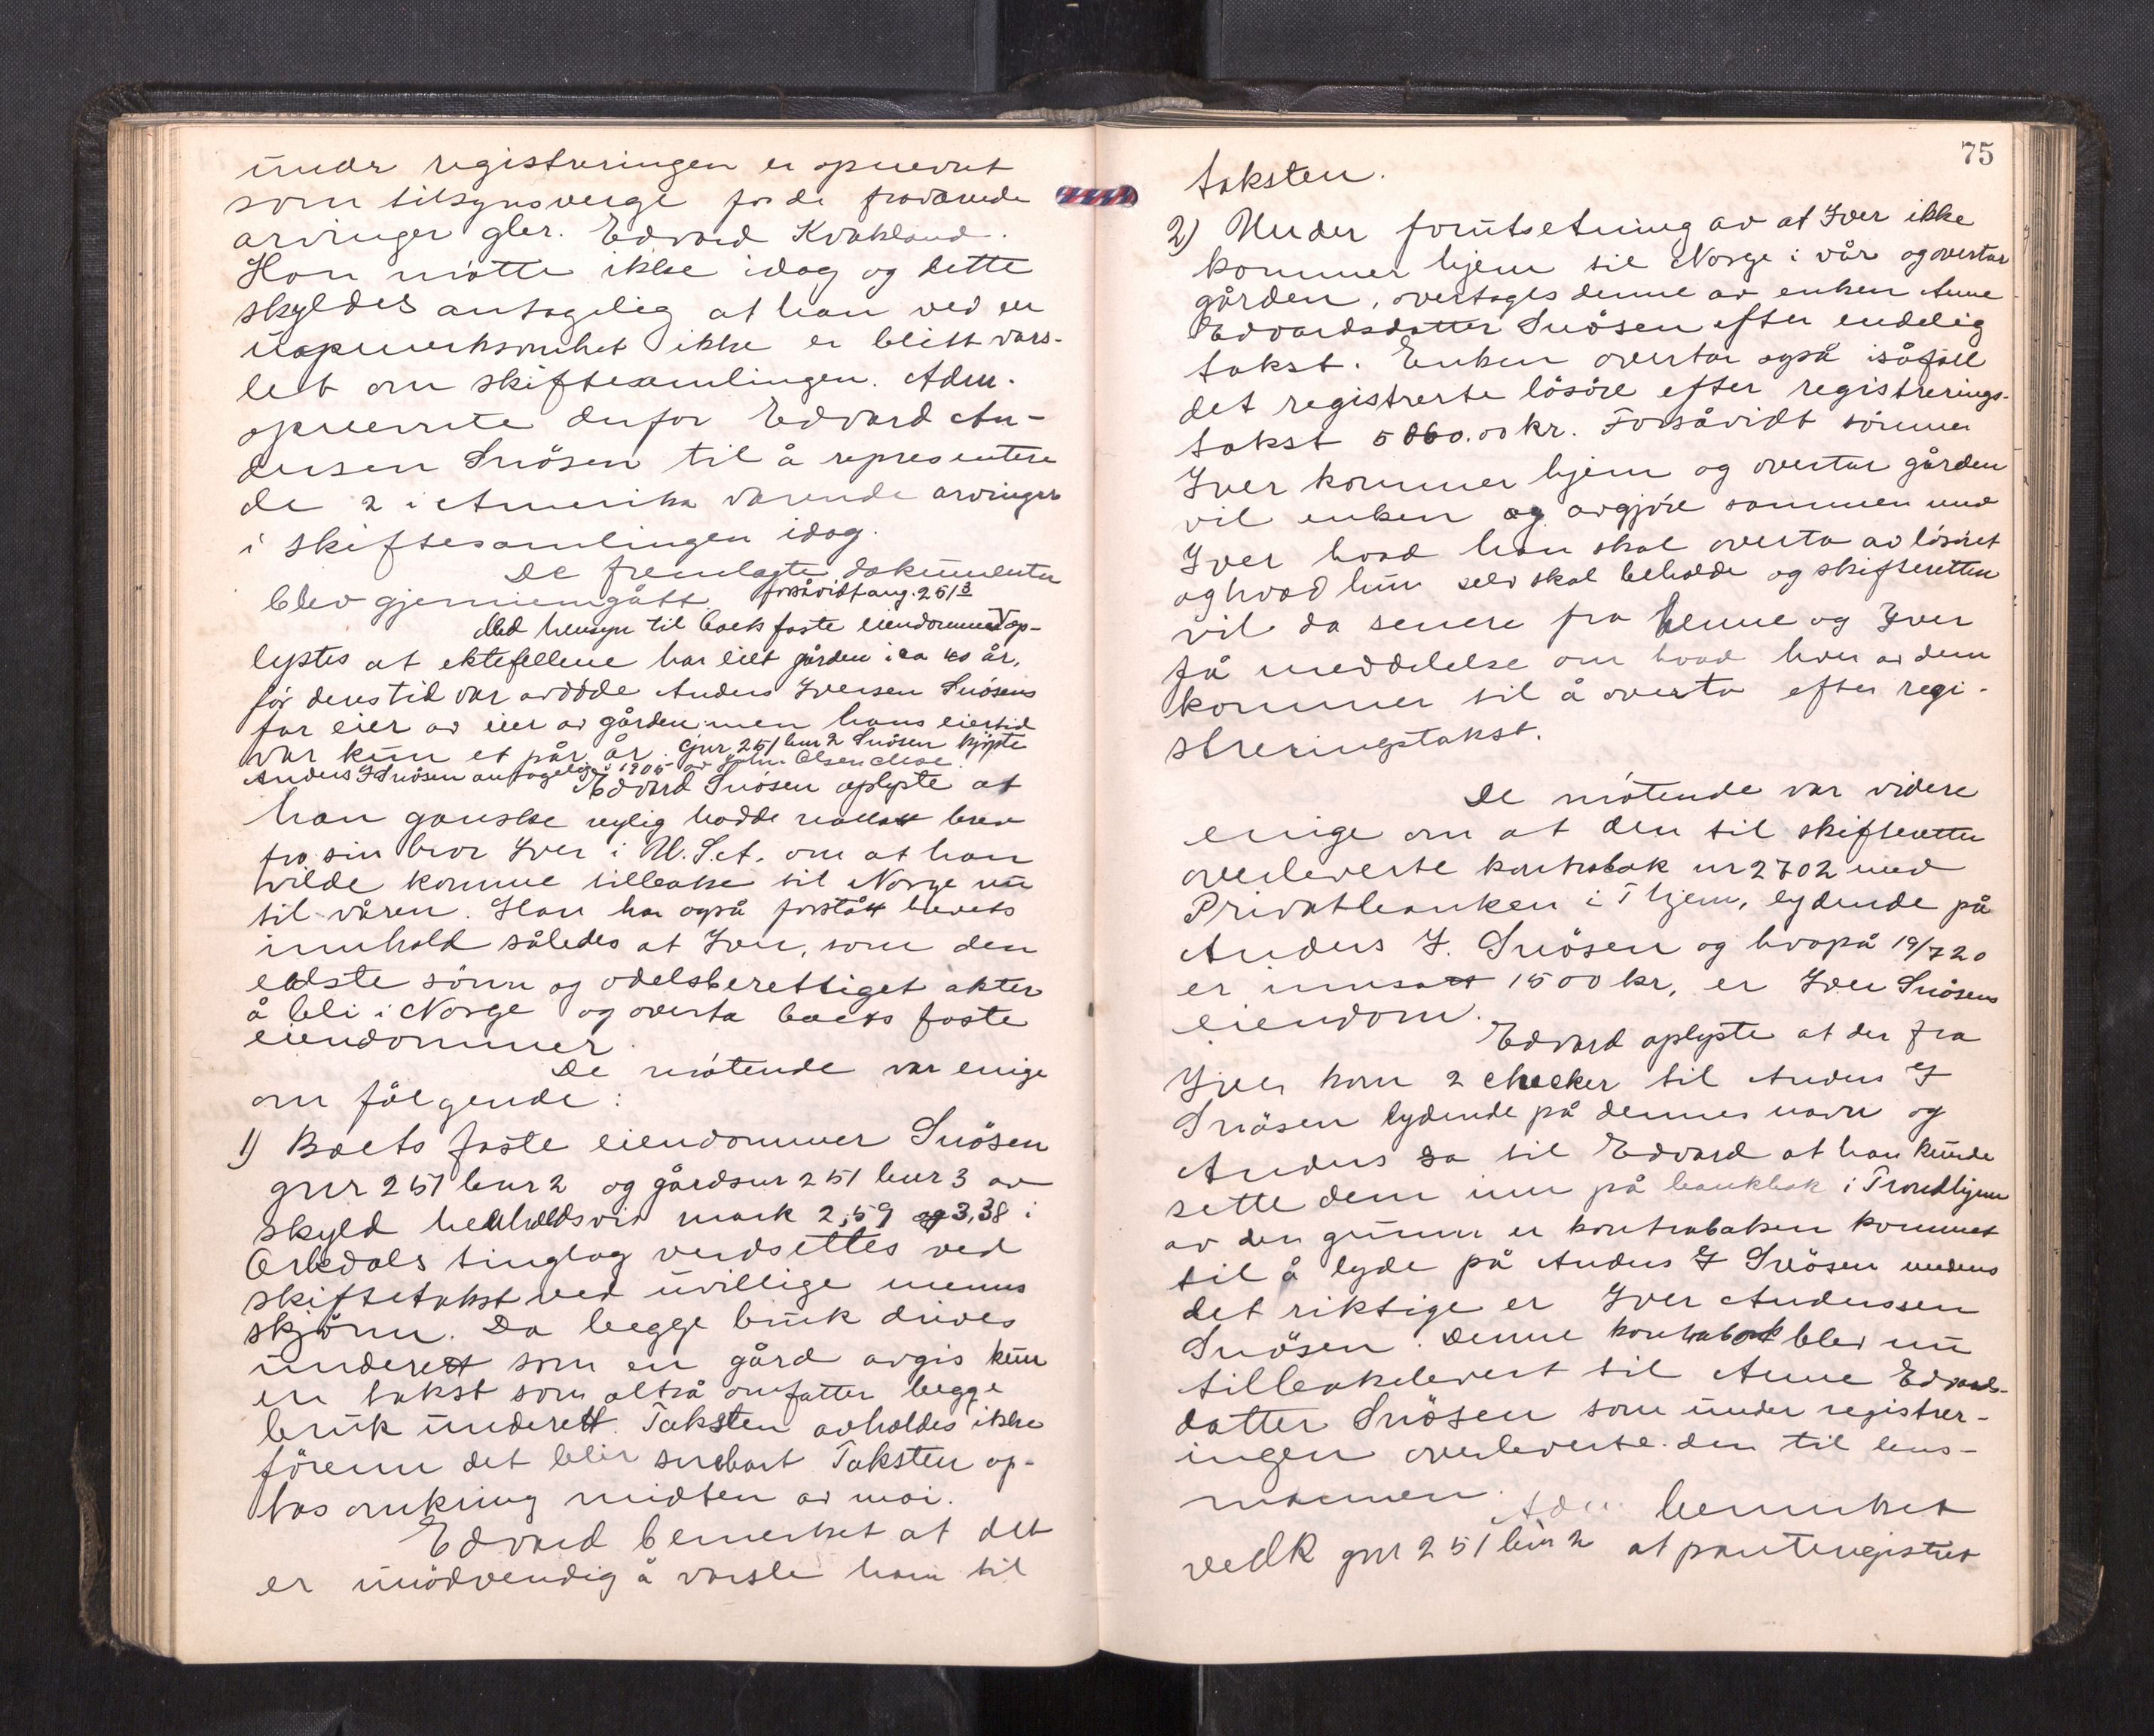 under registreringen er opnevnt
som tilsynsverge for de fraværende
arvinger gbr. Edvard Kvakland.
Han møtte ikke idag og dette
skyldes antagelig at han ved en
uopmerksomhet ikke er blitt vars-
let om skiftesamlingen. Adm.
opnevnte derfor Edvard An-
dersen Snøsen til å representere
de 2 i Amerika værende arvinger
i skiftesamlingen idag.
De fremlagte dokumenter
blev gjennemgått. forsåvidt ang. 251/3
Med hensyn til boets faste eiendommer op-
lystes at ektefellene har eiet gården i ca 40 år,
før deres tid var avdøde Anders Iversen Snøsens
far eier av eier av gården men hans eiertid
var kun et par år. Gnr 251 bnr 2 Snøsen kjøpte
Anders I Snøsen antagelig i 1905 av John Olsen Moe.
Edvard Snøsen oplyste at
han ganske nylig hadde mottatt brev
fra sin bror Iver i U.S.A. om at han
vilde komme tilbake til Norge nu
til våren. Han har også forstått brevets
innhold således at Iver, som den
eldste sønn og odelsberettiget akter
å bli i Norge og overta boets faste
eiendommer.
De møtende var enige
om følgende:
1) Boets faste eiendommer Snøsen
gnr 251 bnr 2 og gårdsnr 251 bnr 3 av
skyld henholdsvis mark 2,59 og 3,38 i
Orkdals tinglag verdsettes ved
skiftetakst ved uvillige menns
skjønn. Da begge bruk drives
underett som en gård avgis kun
en takst som altså omfatter begge
bruk underett. Taksten avholdes ikke
førenn det blir snebart. Taksten op-
tas omkring midten av mai.
Edvard bemerket at det
er unødvendig å varsle ham til
75
taksten.
2) Under forutsetning av at Iver ikke
kommer hjem til Norge i vår og overtar
gården, overtages denne av enken Anne
Edvardsdatter Snøsen efter endelig
takst. Enken overtar også isåfall
det registrerte løsøre efter registrerings-
takst 5060.00 kr. Forsåvidt sønnen
Iver kommer hjem og overtar gården
vil enken og avgjøre sammen med
Iver hvad han skal overta av løsøret
og hvad hun selv skal beholde og skifteretten
vil da senere fra henne og Iver
få meddelelse om hvad hver av dem
kommer til å overta efter regi-
streringstakst.
De møtende var videre
enige om at den til skifteretten
overleverte kontrabok nr 2702 med
Privatbanken i Thjem, lydende på
Anders I. Snøsen og hvorpå 19/7 20
er innsatt 1500 kr, er Iver Snøsens
eiendom.
Edvard oplyste at der fra
Iver kom 2 checker til Anders I
Snøsen lydende på dennes navn og
Anders sa til Edvard at han kunde
sette dem inn på bankbok i Trondhjem
av den grunn er kontraboken kommet
til å lyde på Anders I Snøsen mens
det riktige er Iver Anderssen
Snøsen. Denne kontrabok blev nu
tilbakelevert til Anne Edvards-
datter Snøsen som under registrer-
ingen overleverte den til lens-
mannen.
Adm. bemerket
vedk gnr 251 bnr 2 at panteregistret